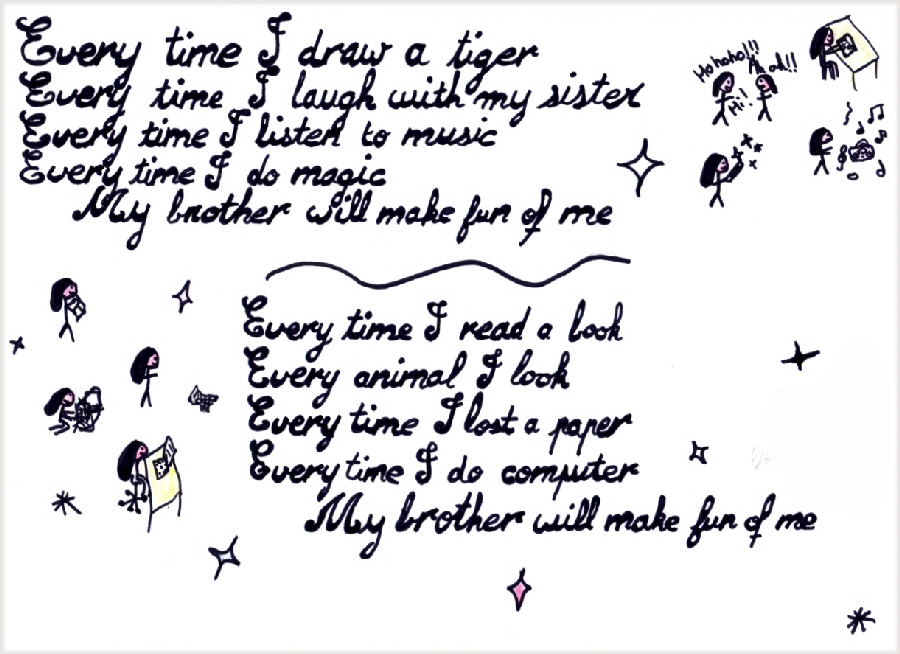 Every time I draw a tiger
Every time I laugh with my sister
Every time I listen to music
Every time I do magic
My brother will make fun of me
Hohoho!!!
Ah ah!!
Hi!
Every time I read a book
Every animal I look
Every time I lost a paper
Every time I do computer
My brother will make fun of me